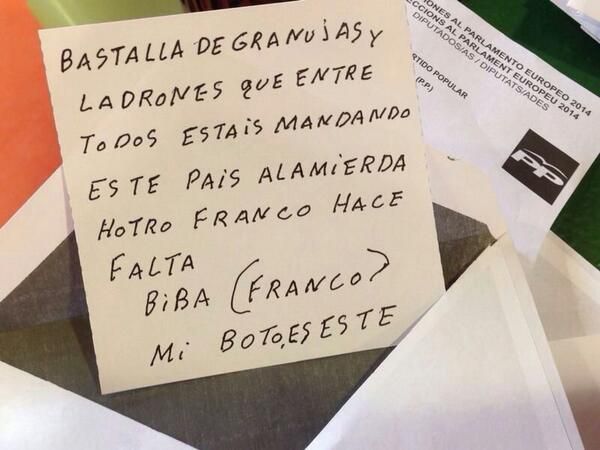 BASTALLA DE GRANUJAS Y
LADRONES QUE ENTRE
TODOS ESTAIS MANDANDO
ESTE PAIS ALAMIERDA
HOTRO FRANCO HACE
FALTA
BIBA (FRANCO)
Mi BOTO, ES ESTE
CIONES AL PARLAMENTO EUROPEO 2014
ECCIONS AL PARLAMENT EUROPEU 2014
DIPUTADOS/AS / DIPUTATS/ADES
RTIDO POPULAR
(P.P.)
PP